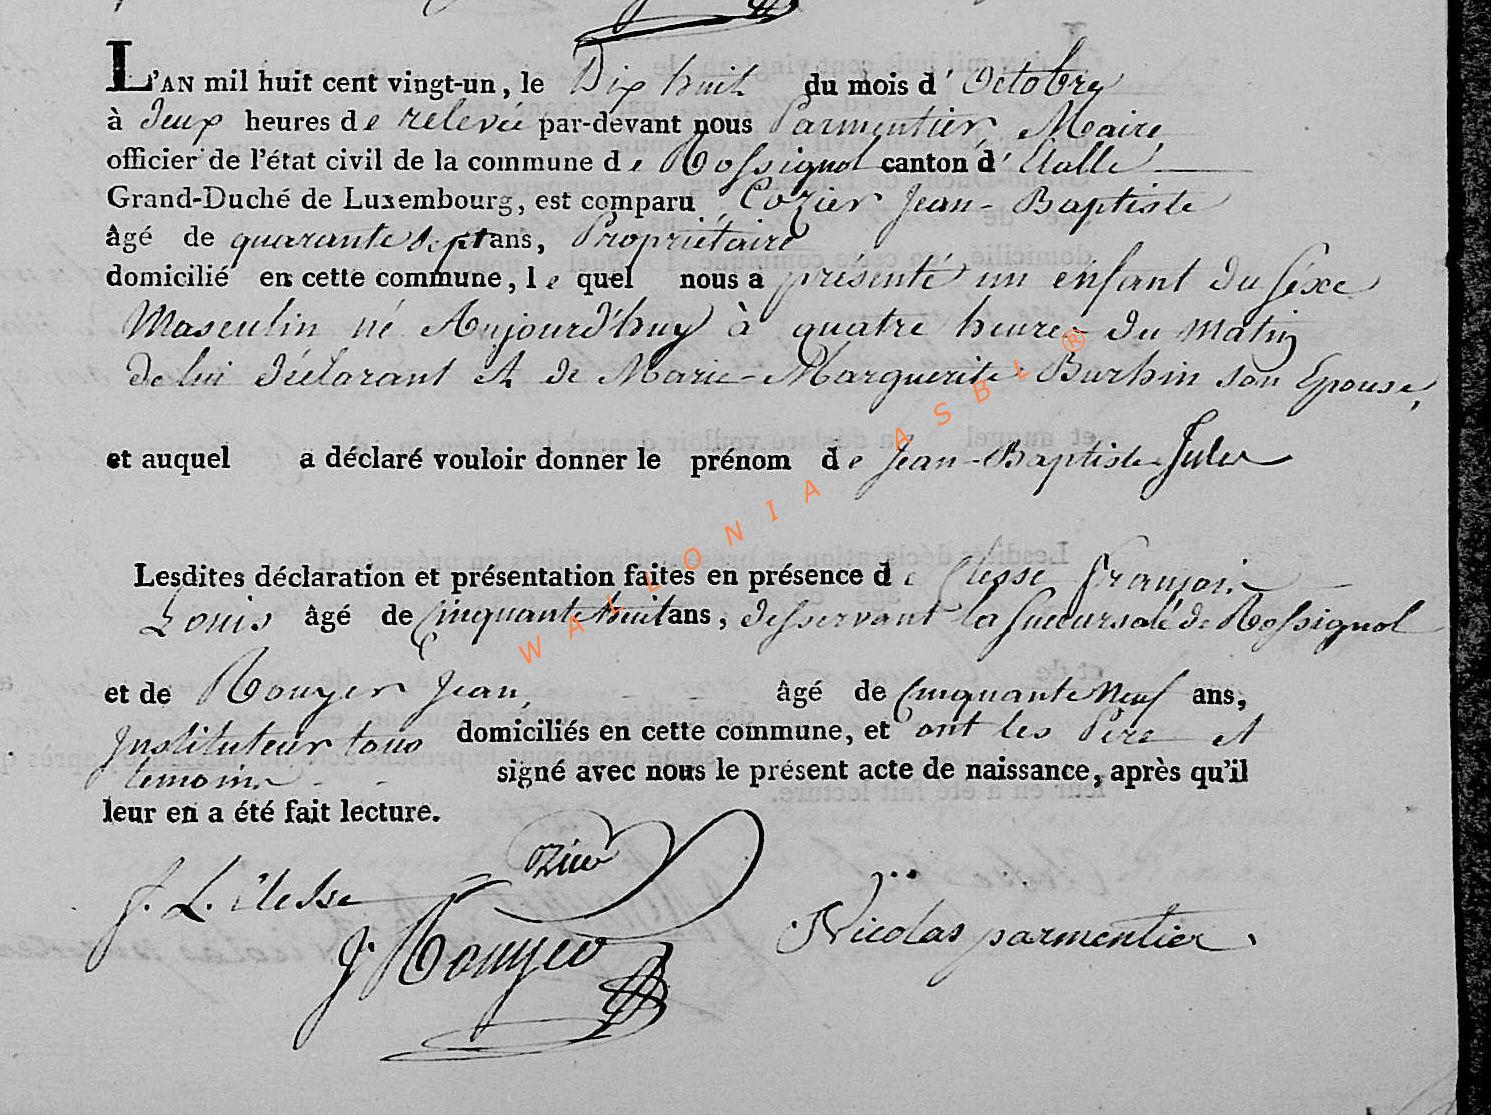 L'AN mil huit cent vingt-un, le Dix huit du mois d' Octobre
à Deux heures de relevée par-devant nous Parmentier, Maire,
officier de l'état civil de la commune de Rossignol canton d' Etalle
Grand-Duché de Luxembourg, est comparu Cozier Jean-Baptiste
âgé de quarante sept ans, Propriétaire
domicilié en cette commune, le quel nous a présenté un enfant du séxe
Masculin né Aujourd'huy à quatre heures du matin
de lui déclarant et de Marie-Marguerite Burhin son Epouse,
et auquel a déclaré vouloir donner le prénom de Jean-Baptiste Jules
Lesdites déclaration et présentation faites en présence de Clesse François
Louis âgé de Cinquante huit ans, desservant la succursale de Rossignol
et de Rouyer Jean, âgé de Cinquante Neuf ans,
Instituteur tous domiciliés en cette commune, et ont les Père et
temoins signé avec nous le présent acte de naissance, après qu'il
leur en a été fait lecture.
Cozier
F. L. Clesse
J. Rouyer
Nicolas parmentier
WALLONIA ASBL ®